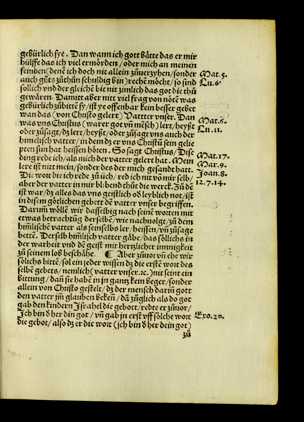 gebürlich sye. Dan wann ich gott bätte das er mir
hülffe das ich viel ermörden / oder mich an meinen
feinden (denē ich doch nit allein zůuerzyhen / sonder Mat.5.
auch gůts zůthůn schuldig bin) reche möcht / so sind Lu.6.
sollich vnd der gleichē bit nit zimlich das got die thů
gewären. Damitt aber nitt viel frag von nötē was
gebürlich zůbittē sy / ist ye offenbar kein besser gebet
wan das (von Christo gelert) Vatter vnser. Dan
was vns Christus (warer got vñ mēsch) lert / heyst Mat.6.
oder zůsagt / dz lert / heyst / oder zůsagt vns auch der Lu.11.
himelisch vatter / in dem dz er vns Christū sein gelie
pten sun hat heissen hören. So sagt Christus / Dise Mat.17.
ding rede ich / als mich der vatter gelert hat. Mein Mar.9.
lere ist nitt mein / sonder des der mich gesandt hatt. Joan.8.
Die wort die ich redē zů üch / red ich nit võ mir selb / 12.7.14.
aber der vatter in mir blibend thůt die werck. Zů dē
ist war / dz alles das vns geistlich oď leyblich not / ist
in disem götlichen gebett dē vatter vnser begriffen.
Darum wölle wir dasselbig nach seinē wotten mit
etwas betrachtūg der selbē / wie nachuolgt / zů dem
himlischē vatter als seinselbs ler / heissen / vñ zůsage
bettē. Derselb himlisch vatter gäbe / das söllichs in
der warheit vnd dē geist mit hertzlicher innigkeit
zů seinem lob beschähe. ¶ Aber zůuor vñ ehe wir
sölichs bittē / sol ein jeder wissen dz die erstē wort des
selbē gebets / nemlich (vatter vnser. ⁊c.) nit seint ein
bittung / dañ sie habē in jn gantz kein beger / sonder
allein von Christo gestelt / dz der mensch darin gott
den vatter jm glauben bekēn / dā zůglich als do got
gab den kindern Israhel die gebott / redte er zůuor /
Ich bin ď her din got / vñ gab jn erst vff sölche wort Exo.20.
die gebot / also dz er die wort (ich bin ď her dein got)
zů